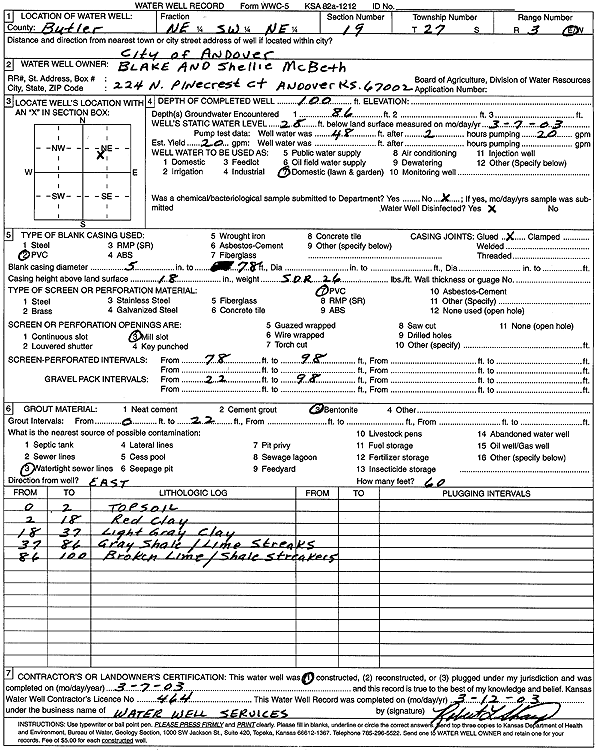 WATER WELL RECORD Form WWC-5 KSA 82a-1212 ID No.
1 LOCATION OF WATER WELL: Fraction Section Number Township Number Range Number
County: Butler NE ¼ SW ¼ NE ¼ 19 T 27 S R 3 E/W
Distance and direction from nearest town or city street address of well if located within city?
City of Andover
2 WATER WELL OWNER: BLAKE AND Shellie McBeth
RR#, St. Address, Box # : 224 N. Pinecrest Ct Andover KS. 67002 Board of Agriculture, Division of Water Resources
City, State, ZIP Code : Application Number:
3 LOCATE WELL'S LOCATION WITH AN "X" IN SECTION BOX:
N
NW NE
X
W E
SW SE
S
4 DEPTH OF COMPLETED WELL 100 ft. ELEVATION:
Depth(s) Groundwater Encountered 1 86 ft. 2 ft. 3 ft.
WELL'S STATIC WATER LEVEL 28 ft. below land surface measured on mo/day/yr 3-7-03
Pump test data: Well water was 48 ft. after 2 hours pumping 20 gpm
Est. Yield 20 gpm: Well water was ft. after hours pumping gpm
WELL WATER TO BE USED AS: 5 Public water supply 8 Air conditioning 11 Injection well
1 Domestic 3 Feedlot 6 Oil field water supply 9 Dewatering 12 Other (Specify below)
2 Irrigation 4 Industrial 7 Domestic (lawn & garden) 10 Monitoring well
Was a chemical/bacteriological sample submitted to Department? Yes No X ; If yes, mo/day/yrs sample was submitted
Water Well Disinfected? Yes X No
5 TYPE OF BLANK CASING USED: 5 Wrought iron 8 Concrete tile CASING JOINTS: Glued X Clamped
1 Steel 3 RMP (SR) 6 Asbestos-Cement 9 Other (specify below) Welded
2 PVC 4 ABS 7 Fiberglass Threaded
Blank casing diameter 5 in. to 78 ft., Dia in. to ft., Dia in. to ft.
Casing height above land surface 18 in., weight SDR 26 lbs./ft. Wall thickness or guage No.
TYPE OF SCREEN OR PERFORATION MATERIAL: 7 PVC 10 Asbestos-Cement
1 Steel 3 Stainless Steel 5 Fiberglass 8 RMP (SR) 11 Other (Specify)
2 Brass 4 Galvanized Steel 6 Concrete tile 9 ABS 12 None used (open hole)
SCREEN OR PERFORATION OPENINGS ARE: 5 Guazed wrapped 8 Saw cut 11 None (open hole)
1 Continuous slot 3 Mill slot 6 Wire wrapped 9 Drilled holes
2 Louvered shutter 4 Key punched 7 Torch cut 10 Other (specify) ft.
SCREEN-PERFORATED INTERVALS: From 78 ft. to 98 ft., From ft. to ft.
From ft. to ft., From ft. to ft.
GRAVEL PACK INTERVALS: From 22 ft. to 98 ft., From ft. to ft.
From ft. to ft., From ft. to ft.
6 GROUT MATERIAL: 1 Neat cement 2 Cement grout 3 Bentonite 4 Other
Grout Intervals: From 0 ft. to 22 ft., From ft. to ft., From ft. to ft.
What is the nearest source of possible contamination: 10 Livestock pens 14 Abandoned water well
1 Septic tank 4 Lateral lines 7 Pit privy 11 Fuel storage 15 Oil well/Gas well
2 Sewer lines 5 Cess pool 8 Sewage lagoon 12 Fertilizer storage 16 Other (specify below)
3 Watertight sewer lines 6 Seepage pit 9 Feedyard 13 Insecticide storage
Direction from well? EAST How many feet? 60
FROM TO LITHOLOGIC LOG FROM TO PLUGGING INTERVALS
0 2 TOPSOIL
2 18 Red Clay
18 37 Light Gray Clay
37 86 Gray Shale / Lime Streaks
86 100 Broken Lime / Shale Streakers
7 CONTRACTOR'S OR LANDOWNER'S CERTIFICATION: This water well was (1) constructed, (2) reconstructed, or (3) plugged under my jurisdiction and was
completed on (mo/day/year) 3-7-03 and this record is true to the best of my knowledge and belief. Kansas
Water Well Contractor's Licence No 464 This Water Well Record was completed on (mo/day/yr) 3-12-03
under the business name of WATER WELL SERVICES by (signature)
INSTRUCTIONS: Use typewriter or ball point pen. PLEASE PRESS FIRMLY and PRINT clearly. Please fill in blanks, underline or circle the correct answers. Send top three copies to Kansas Department of Health
and Environment, Bureau of Water, Geology Section, 1000 SW Jackson St., Suite 420, Topeka, Kansas 66612-1367. Telephone 785-296-5522. Send one to WATER WELL OWNER and retain one for your
records. Fee of $5.00 for each constructed well.